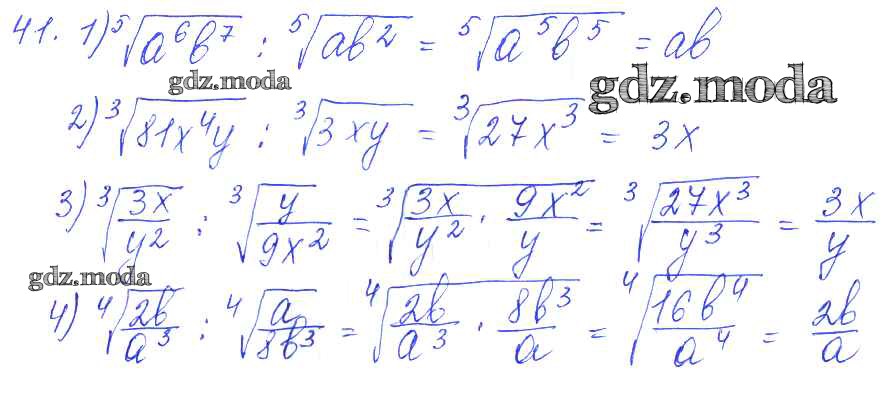 41. 1) ⁵√(a⁶b⁷) : ⁵√(ab²) = ⁵√(a⁵b⁵) = ab
gdz.moda
gdz.moda
2) ³√(81x⁴y) : ³√(3xy) = ³√(27x³) = 3x
3) ³√(3x/y²) : ³√(y/9x²) = ³√(3x/y² · 9x²/y) = ³√(27x³/y³) = 3x/y
gdz.moda
4) ⁴√(2b/a³) : ⁴√(a/8b³) = ⁴√(2b/a³ · 8b³/a) = ⁴√(16b⁴/a⁴) = 2b/a